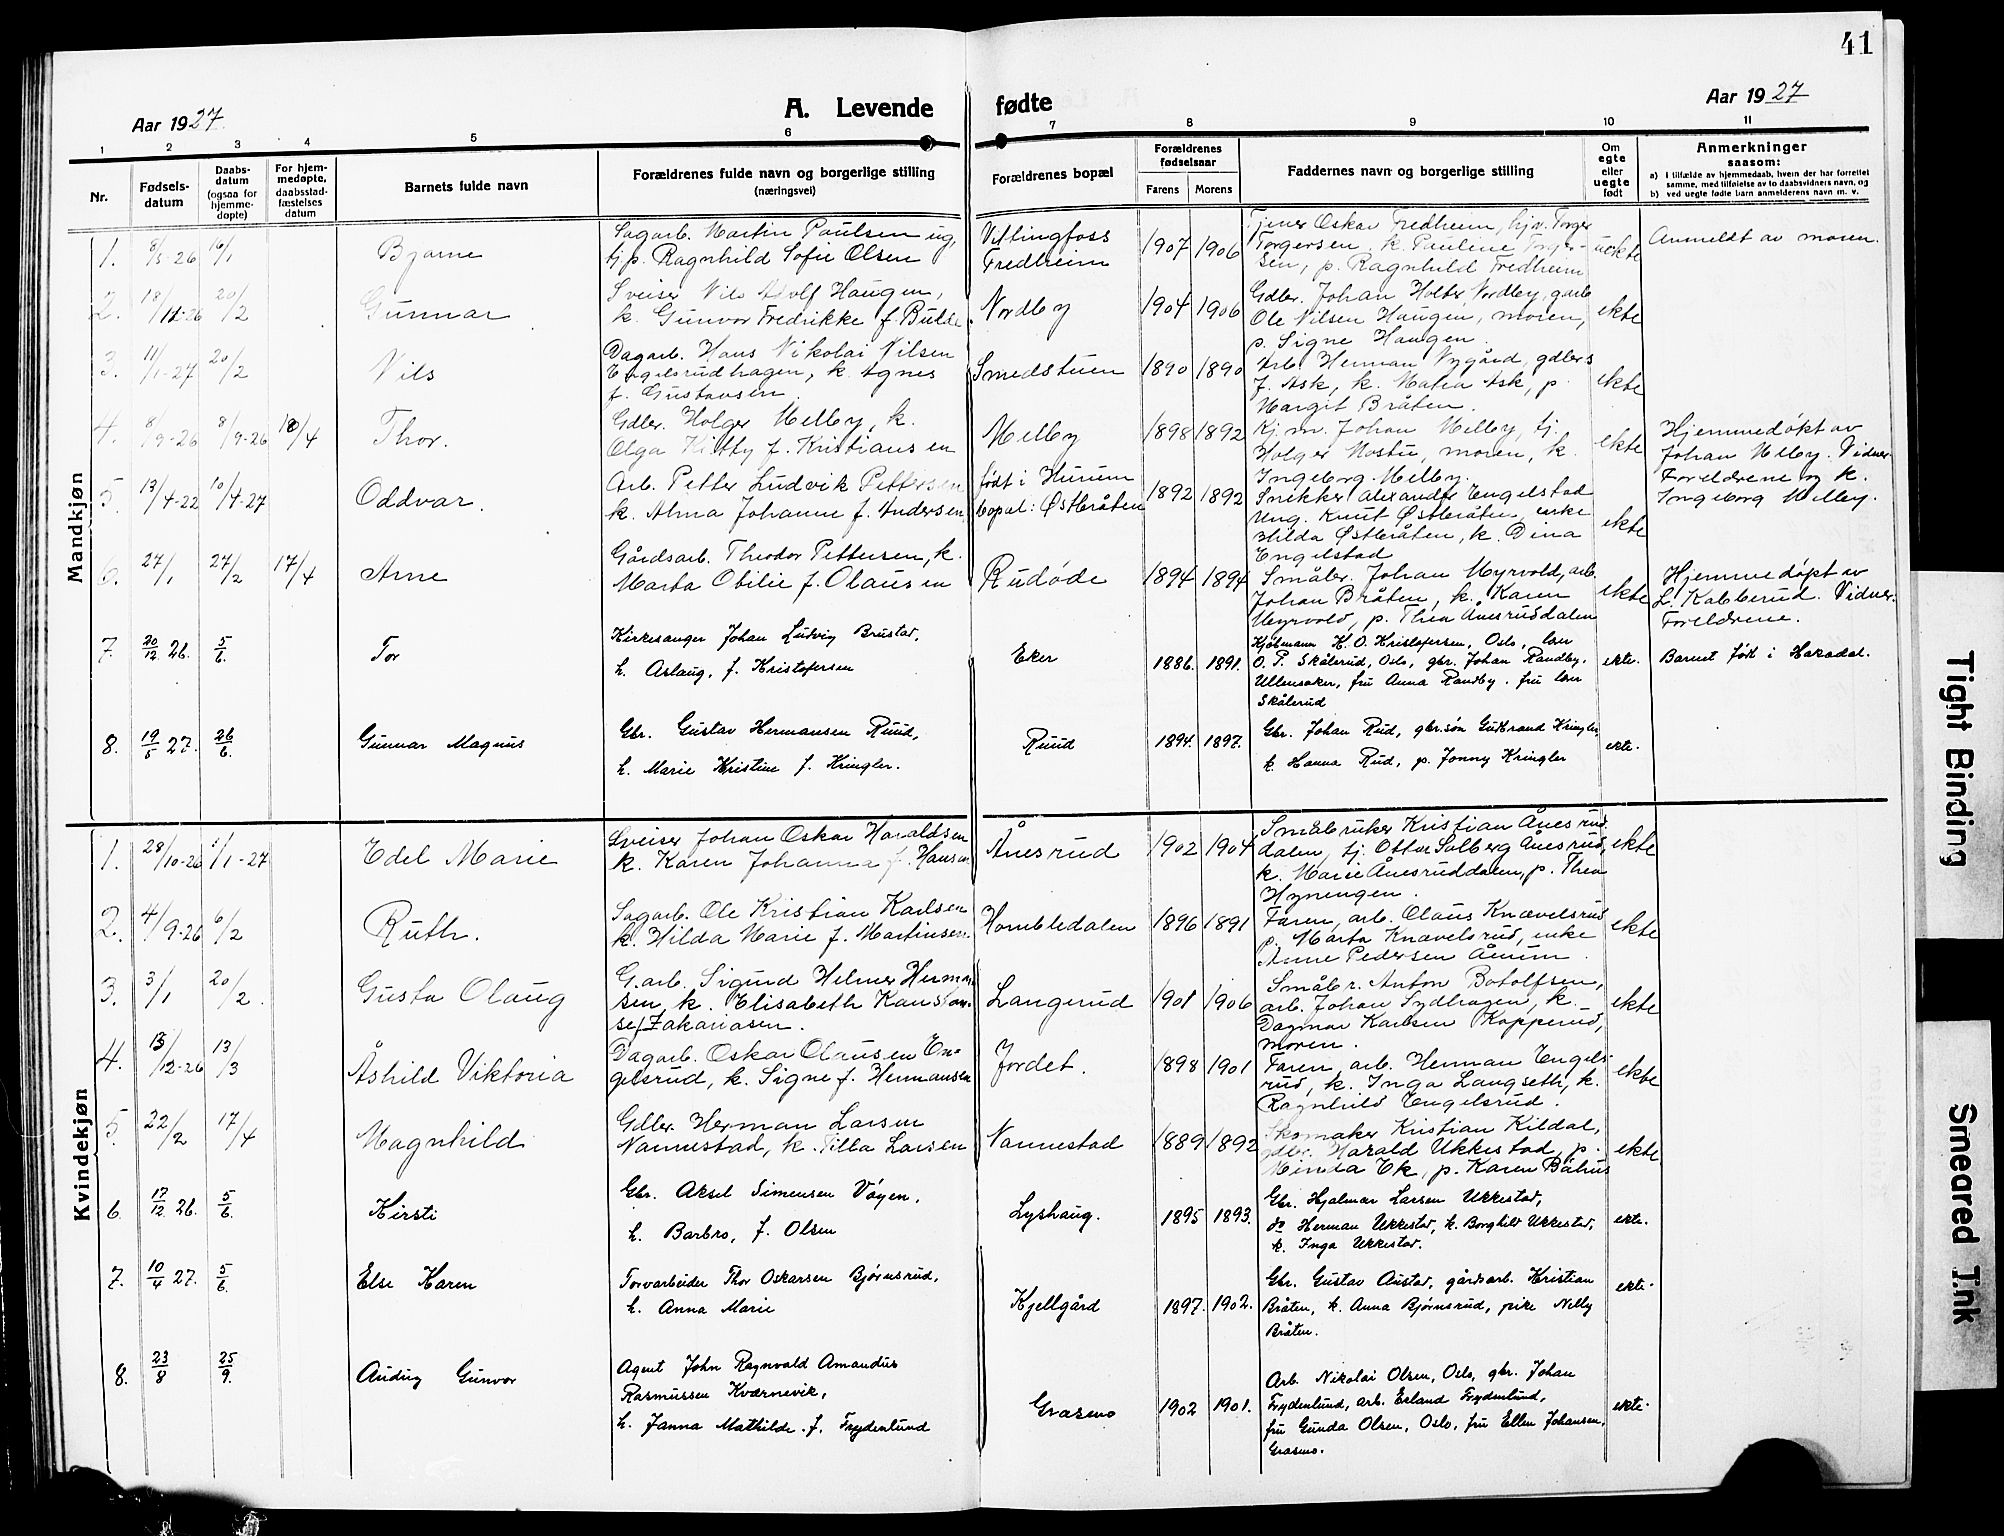 41
Aar 1927. A. Levende fødte Aar 1927
1 2 3 4 5 6 7 8 9 10 11
Nr. Fødsels-datum Daabs-datum (ogsaa for hjemme-døpte) For hjem-medøpte, daabsstad-fæstelses datum Barnets fulde navn Forældrenes fulde navn og borgerlige stilling (næringsvei) Forældrenes bopæl Forældrenes fødselsaar Farens Morens Faddernes navn og borgerlige stilling Om egte eller uegte født Anmerkninger saasom:
a) i tilfælde av hjemmedaab, hvem der har forrettet samme, med tilføielse av to daabsvidners navn, og
b) ved uegte fødte barn anmelderens navn m. v.
Mandkjøn
1. 8/5-26 16/1 Bjarne
Sagarb. Martin Paulsen ug,
tj.p. Ragnhild Sofie Olsen
Vittingfoss
Fredheim
1907 1906
Tjener Oskar Fredheim, hjv. Torger
Torgersen, k. Pauline Torger-
sen, p. Ragnhild Fredheim
uekte
Anmeldt av moren.
2. 18/11-26 20/2 Gunnar
Sveiser Nils Adolf Haugen,
k. Gunvor Fredrikke f. Bulde.
Nordby
1904 1906
Gdbr. Johan Holter Nordby, garb.
Ole Nilsen Haugen, moren,
p. Signe Haugen.
ekte
3. 11/1-27 20/2 Nils
Dagarb. Hans Nikolai Nilsen
Engelsrudhagen, k. Agnes
f. Gustavsen.
Smedstuen
1890 1890
Arb. Herman Nygård, gdbrs
f. Ask, k. Matea Ask, p.
Margit Bråten.
ekte
4. 8/9-26 8/9-26 18/4 Thor.
Gdbr. Holger Melby, k.
Olga Kitty f. Kristiansen
Melby
1898 1892
Kj.m. Johan Melby, tj.
Holger Mostu, moren, k.
Ingeborg Melby.
ekte
Hjemmedøpt av
Johan Melby. Vidner
Foreldrene og k.
Ingeborg Melby.
5. 13/4-22 10/4-27 Oddvar.
Arb. Petter Ludvik Pettersen
k. Alma Johanne f. Andersen.
født i Hurum
bopæl: Østbråten
1892 1892
Snikker Alexander Engelstad
Ung. Knut Østbråten, enke
Hilda Østbråten, k. Dina
Engelstad
ekte
6. 27/1 27/2 17/4 Arne
Gårdsarb. Theodor Pettersen, k.
Marta Otilie f. Olausen
Rudøde
1894 1894
Småbr. Johan Myrvold, arb.
Johan Bråten, k. Karen
Myrvold, p. Thea Ånesruddalen
ekte
Hjemmedøpt av
L. Kabberud. Vidner
Foreldrene.
7. 20/12 26. 5/6. Tor
Kirkesanger Johan Ludvig Brustad,
h. Aslaug, f. Kristofersen
Eker
1886. 1891.
Kjøbmann K. O. Kristofersen, Oslo,
O. P. Skålerud, Oslo, gbr. Johan Randby,
Ullensaker, fru Anna Randby. fru
Skålerud
ekte.
Barnet født i Hakadal.
8. 19/5 27. 26/6. Gunnar Magnus
Gbr. Gustav Hermansen Ruud,
h. Marie Kristine f. Kringler.
Ruud
1894. 1897.
Gbr. Johan Rud, gbr.søn Gudbrand Kringler
k. Hanna Rud, p. Jonny Kringler
ekte.
Kvindekjøn
1. 28/10-26 1/1-27 Edel Marie
Sveiser Johan Oskar Haraldsen
k. Karen Johanna f. Hansen
Ånesrud
1902 1904
Småbruker Kristian Ånesrud
dalen, tj. Ottar Solberg Ånesrud,
k. Marie Ånesruddalen, p. Thea
Hynengen.
ekte
2. 4/9-26 6/2 Ruth.
Sagarb. Ole Kristian Karlsen
k. Hilda Marie f. Martinsen.
Hombledalen
1896 1891
Faren, arb. Olaus Knævelsrud
p. Marta Knævelsrud, enke
Anne Pedersen Åmum.
ekte
3. 3/1 20/2. Gusta Olaug
G.arb. Sigurd Helmer Herman
sen, k. Elisabeth Konstan-
se f. Zakariasen.
Langerud
1901 1906
Småbr. Anton Botolfsen,
arb. Johan Sydhagen, k.
Dagmar Karlsen Kopperud,
moren.
ekte
4. 13/12-26 13/3 Åshild Viktoria
Dagarb. Oskar Olausen En-
gelsrud, k. Signe f. Hermansen
Jordet.
1898 1901
Faren, arb. Herman Engels-
rud, k. Inga Langseth, k.
Ragnhild Engelsrud.
ekte
5. 22/2 17/4 Magnhild
Gdbr. Herman Larsen
Nannestad, k. Tilla Larsen
Nannestad
1889 1892
Skomaker Kristian Kildal,
gdbr. Harald Ukkestad, p.
Minda Ek, p. Karen Båhus
ekte.
6. 17/12 26. 5/6. Kirsti
Gbr. Aksel Simensen Vøyen,
h. Barbro, f. Olsen
Lyshaug.
1895 1893.
Gbr. Hjalmar Larsen Ukkestad,
do Herman Ukkestad, k. Borghild Ukkestad,
k. Inga Ukkestad.
ekte.
7. 10/4 27. 5/6. Else Karen
Torvarbeider Thor Oskarsen Bjørnsrud,
h. Anna Marie
Kjellgård
1897. 1902.
Gbr. Gustav Austad, gårdsarb. Kristian
Bråten, k. Anna Bjørnsrud, pike Nelly
Bråten.
ekte.
8. 23/8 25/9. Audny Gunvor
Agent John Ragnvald Amandus
Rasmussen Kværnevik,
h. Janna Mathilde. f. Frydenlund
Grasmo
1902 1901.
Arb. Nikolai Olsen, Oslo, gbr. Johan
Frydenlund, arb. Erland Frydenlund,
fru Gunda Olsen, Oslo, fru Ellen Johansen,
Grasmo.
ekte.
Tight Binding
Smeared Ink